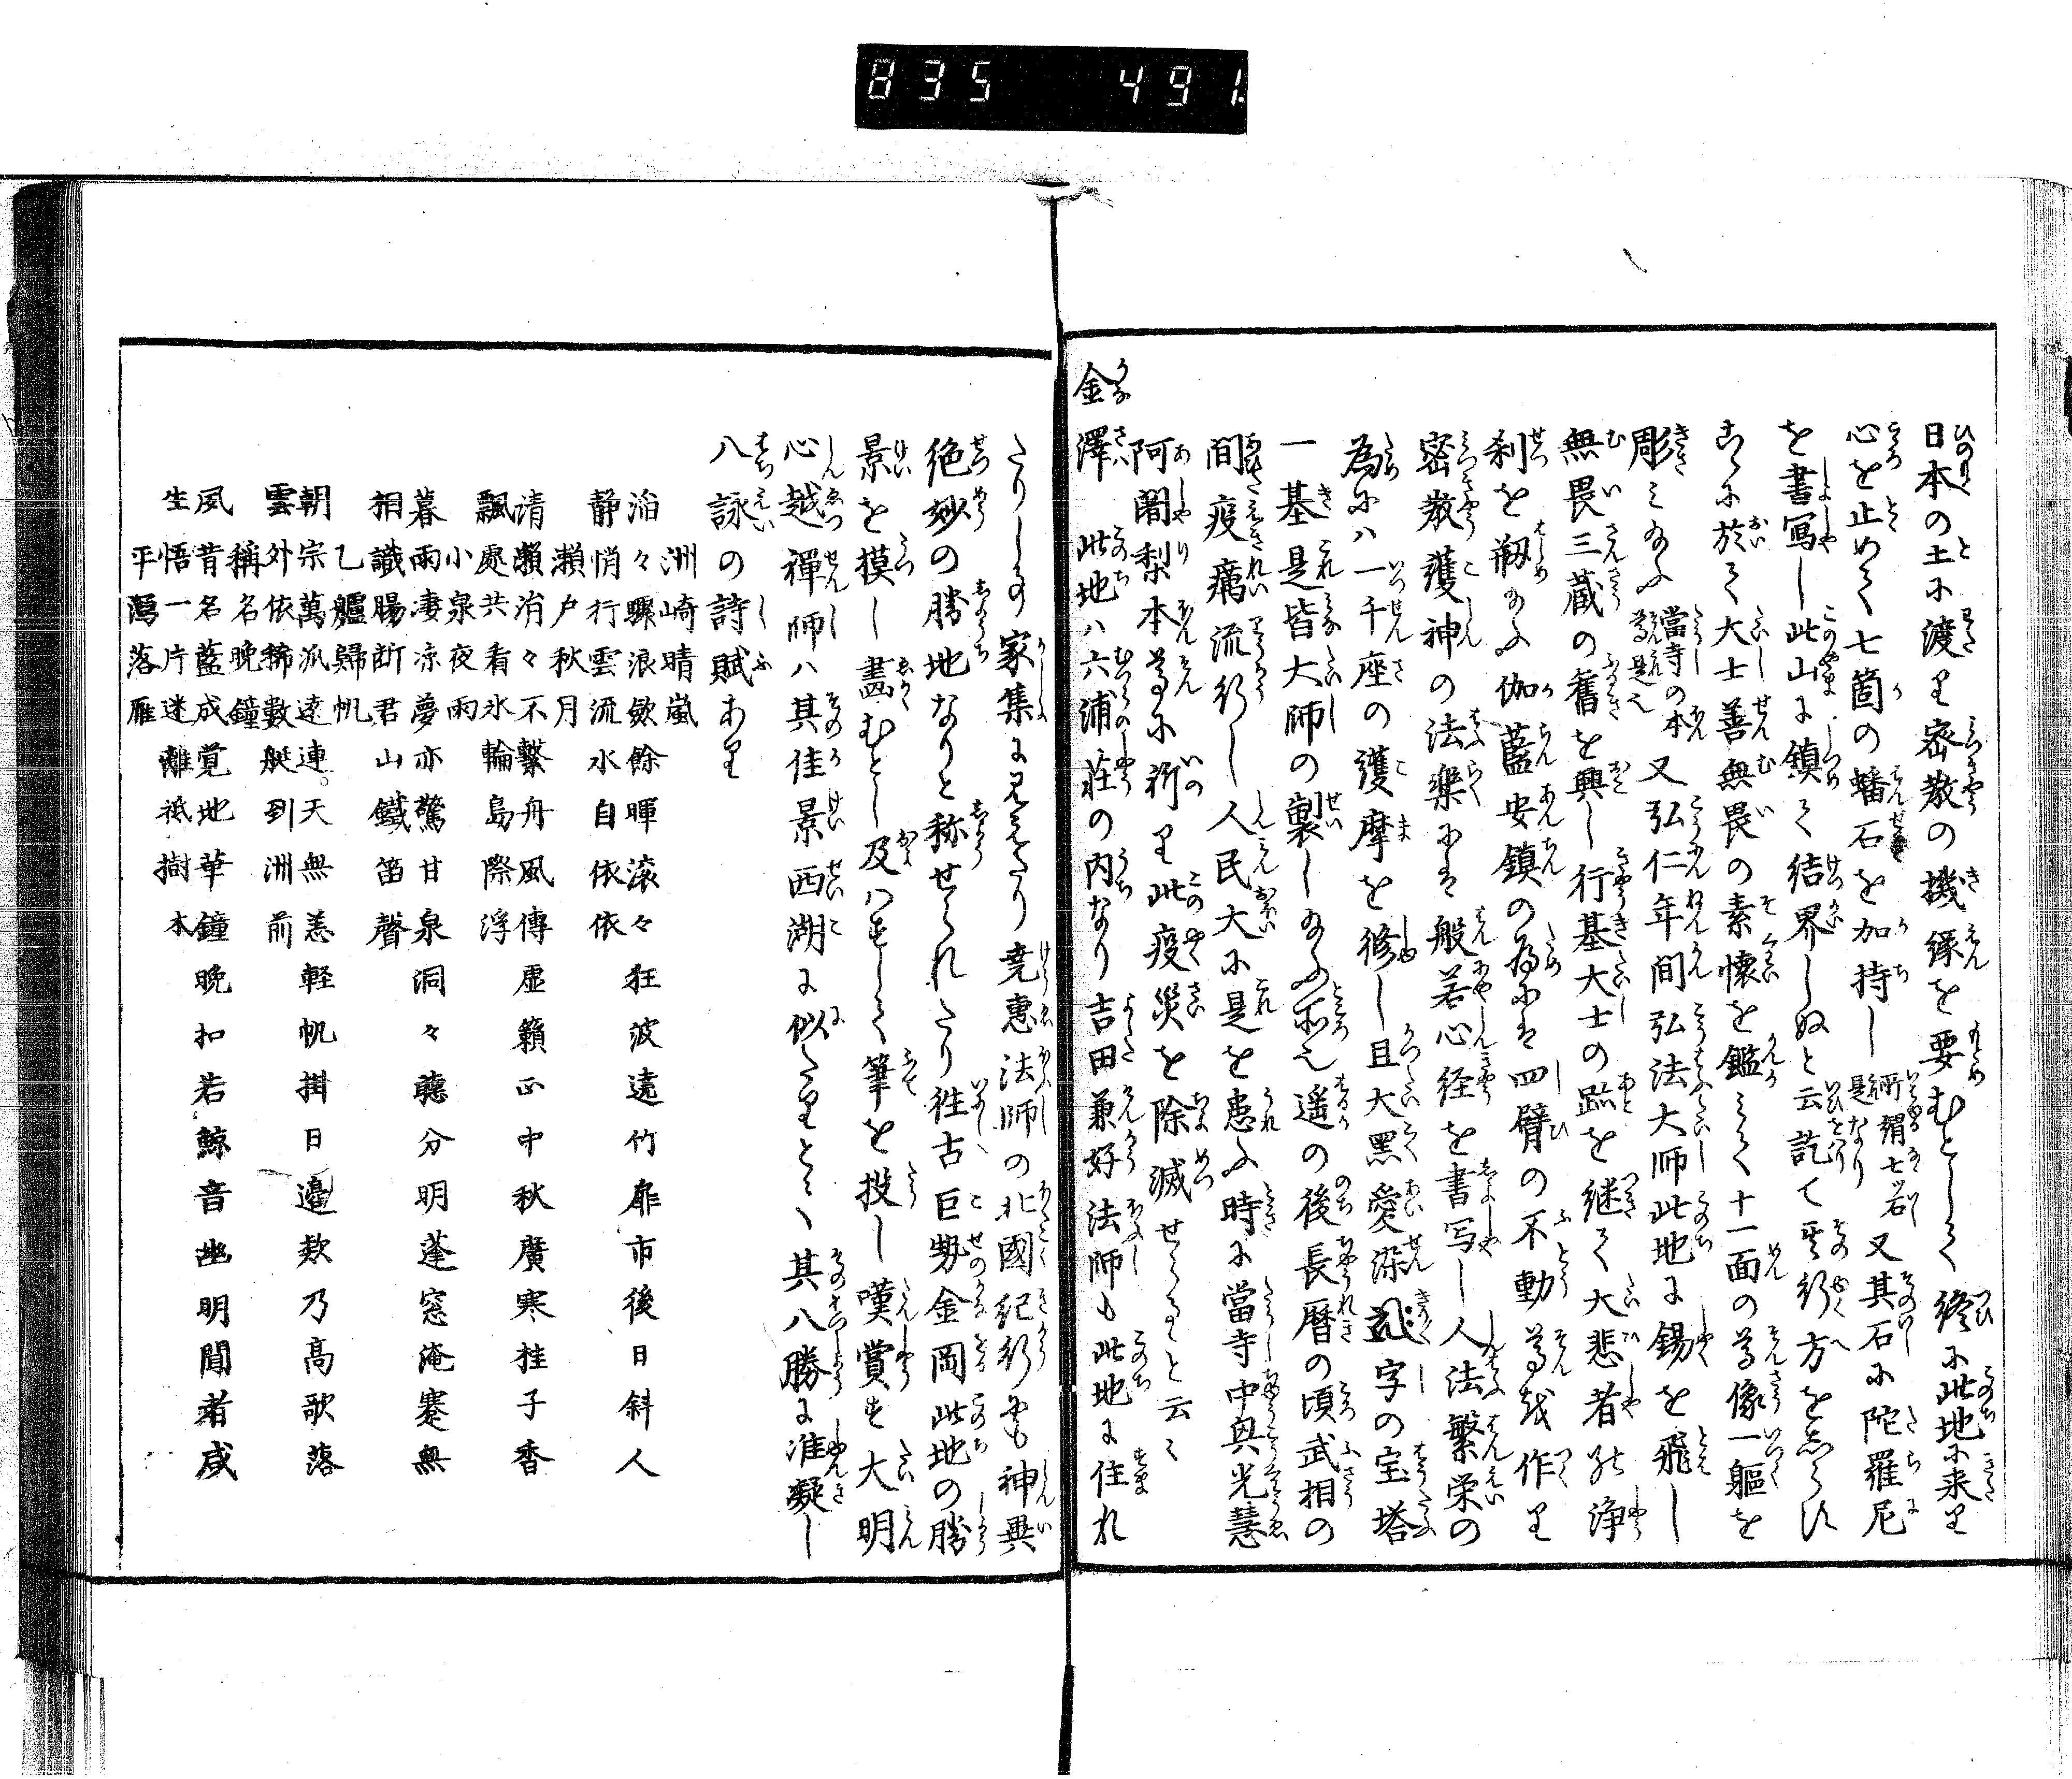 835 491
日本の土に渡り密教の機縁を要むとして終に此地に来り
心を止めて七箇の蟠石を加持し所謂七ツ石是なり又其石に陀羅尼
を書写し此山に鎮て結界しぬと云訖て其行方をしらす
こゝに於て大士善無畏の素懐を鑑ミて十一面の尊像一躯を
彫ミ給ふ當寺の本尊是也又弘仁年間弘法大師此地に錫を飛し
無畏三蔵の舊を興し行基大士の跡を継て大悲者の浄
刹を剏め給ふ伽藍安鎮の為には四臂の不動尊を作り
密教護神の法楽には般若心経を書写し人法繁栄の
為には一千座の護摩を修し且大黒愛染字の宝塔
一基是皆大師の製し給ふ所也遥の後長暦の頃武相の
間疫癘流行し人民大に是を患ふ時に當寺中興光慧
阿闍梨本尊に祈り此疫災を除滅せらると云々
金澤 此地ハ六浦荘の内なり吉田兼好法師も此地に住れ
たりし事家集に見えたり堯恵法師の北國紀行にも神異
絶妙の勝地なりと称せられたり往古巨勢金岡此地の勝
景を摸し畵むとし及ハすして筆を投し嘆賞す大明
心越禅師ハ其佳景西湖に似たりとて其八勝に准擬し
八詠の詩賦あり
洲崎晴嵐
滔々驟浪歛餘暉滚々狂波遶竹扉市後日斜人
静悄行雲流水自依依
瀬戸秋月
清瀬涓々不繋舟風傳虚籟正中秋廣寒桂子香
飄處共看氷輪島際浮
小泉夜雨
暮雨凄凉夢亦驚甘泉洞々聴分明蓬窓淹蹇無
相識腸断君山鐵笛聲
乙艫歸帆
朝宗萬派遠連天無恙軽帆掛日邉欸乃高歌落
雲外依稀數艇到洲前
稱名晩鐘
夙昔名藍成覚地華鐘晩扣若鯨音幽明聞者咸
生悟一片迷離祗樹本
平潟落雁